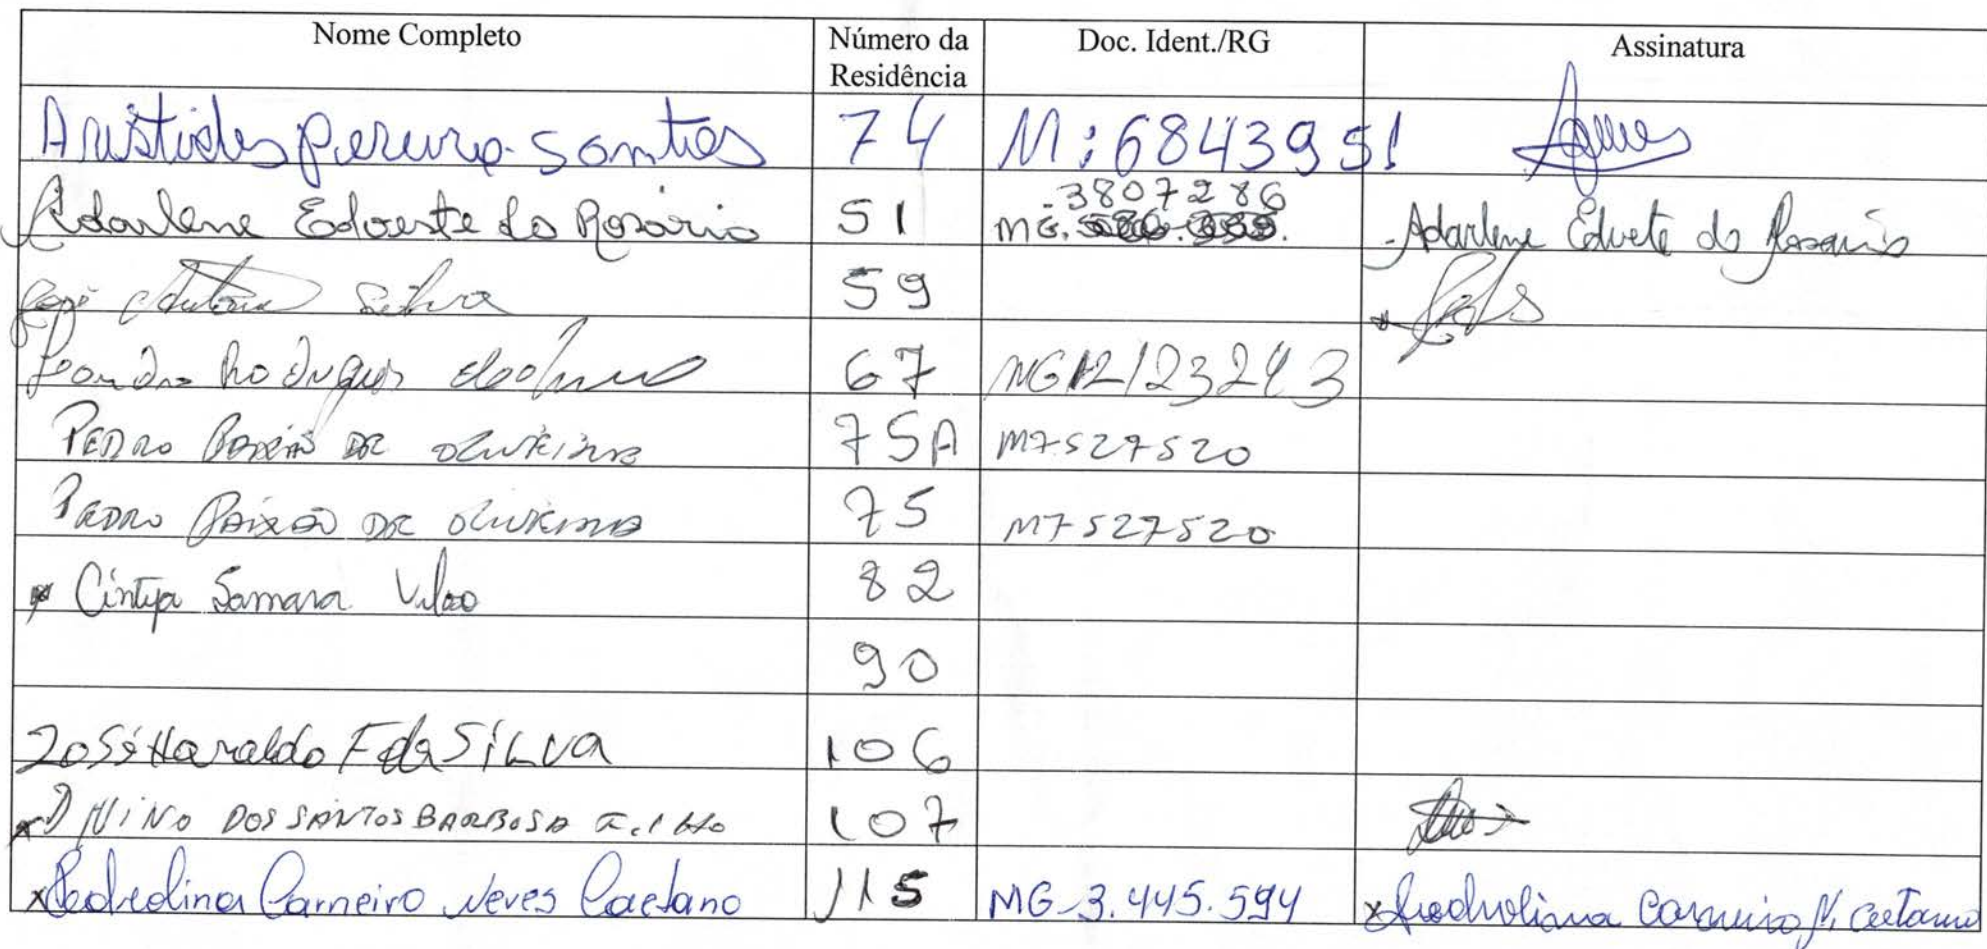 Nome Completo Número da Residência Doc. Ident./RG Assinatura
Aristides Pereira Santos 74 M:6843951
Adarlene Edoeste do Rosário 51 MG. 3807286 Adarlene Edvete do Rosário
José Antonio Silva 59
Leandro Rodrigues 67
PEDRO PAIXÃO DE OLIVEIRA 75A M7527520
PEDRO PAIXÃO DE OLIVEIRA 75 M7527520
x Cintya Samara 82
90
José Haraldo F da SiLVA 106
DOS SANTOS BARBOSA 107
x Carneiro Neves Caetano 115 MG-3.445.594 x Carneiro N. Caetano